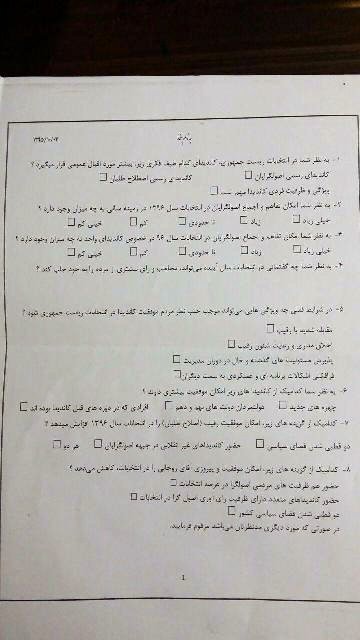 باسمه تعالی
۱۳۹۵/۱۰/۰۴
۱- به نظر شما در انتخابات ریاست جمهوری، کاندیدای کدام طیف فکری زیر، بیشتر مورد اقبال عمومی قرار میگیرد؟
کاندیدای رسمی اصولگرایان □ کاندیدای رسمی اصلاح طلبان □
ویژگی و ظرفیت فردی کاندیدا مهم است □
۲- به نظر شما امکان تفاهم و اجماع اصولگرایان در انتخابات سال ۱۳۹۶ در زمینه سالی به چه میزان وجود دارد؟
خیلی زیاد □ زیاد □ تا حدودی □ کم □ خیلی کم □
۳- به نظر شما امکان تفاهم و اجماع اصولگرایان در انتخابات سال ۹۶ در خصوص کاندیدای واحد به چه میزان وجود دارد؟
خیلی زیاد □ زیاد □ تا حدودی □ کم □ خیلی کم □
۴- به نظر شما چه گفتمانی در انتخابات سال آینده می‌تواند، مخاطب و رای بیشتری از مردم را به خود جلب کند؟
۵- در شرایط فعلی چه ویژگی هایی می‌تواند موجب جلب نظر مردم موفقیت کاندیدا در انتخابات ریاست جمهوری شود؟
مقابله شدید با رقیب □
اخلاق مداری و رعایت شئون رقیب □
پذیرش مسئولیت های گذشته و حال در دوران مدیریت □
فرافکنی اشکالات برنامه ای و عملکردی به سمت دیگران □
۶- به نظر شما کدامیک از کاندیدای های زیر امکان موفقیت بیشتری دارند؟
چهره های جدید □ دولتمردان دولت های نهم و دهم □ افرادی که در دوره های قبل کاندیدا بوده اند □
۷- کدامیک از گزینه های زیر، امکان موفقیت رقیب (اصلاح طلبان) را در انتخابات سال ۱۳۹۶ افزایش میدهد؟
دو قطبی شدن فضای سیاسی □ حضور کاندیداهای غیر انقلابی در جبهه اصولگرایان □ هر دو □
۸- کدامیک از گزینه های زیر، امکان موفقیت و پیروزی آقای روحانی را در انتخابات، کاهش می‌دهد؟
حضور همه ظرفیت های مردمی اصولگرا در عرصه انتخابات □
حضور کاندیداهای متعدد دارای ظرفیت رای آوری اصول گرا در انتخابات □
دو قطبی شدن فضای سیاسی کشور □
در صورتی که مورد دیگری مدنظرتان می‌باشد مرقوم فرمایید.
1